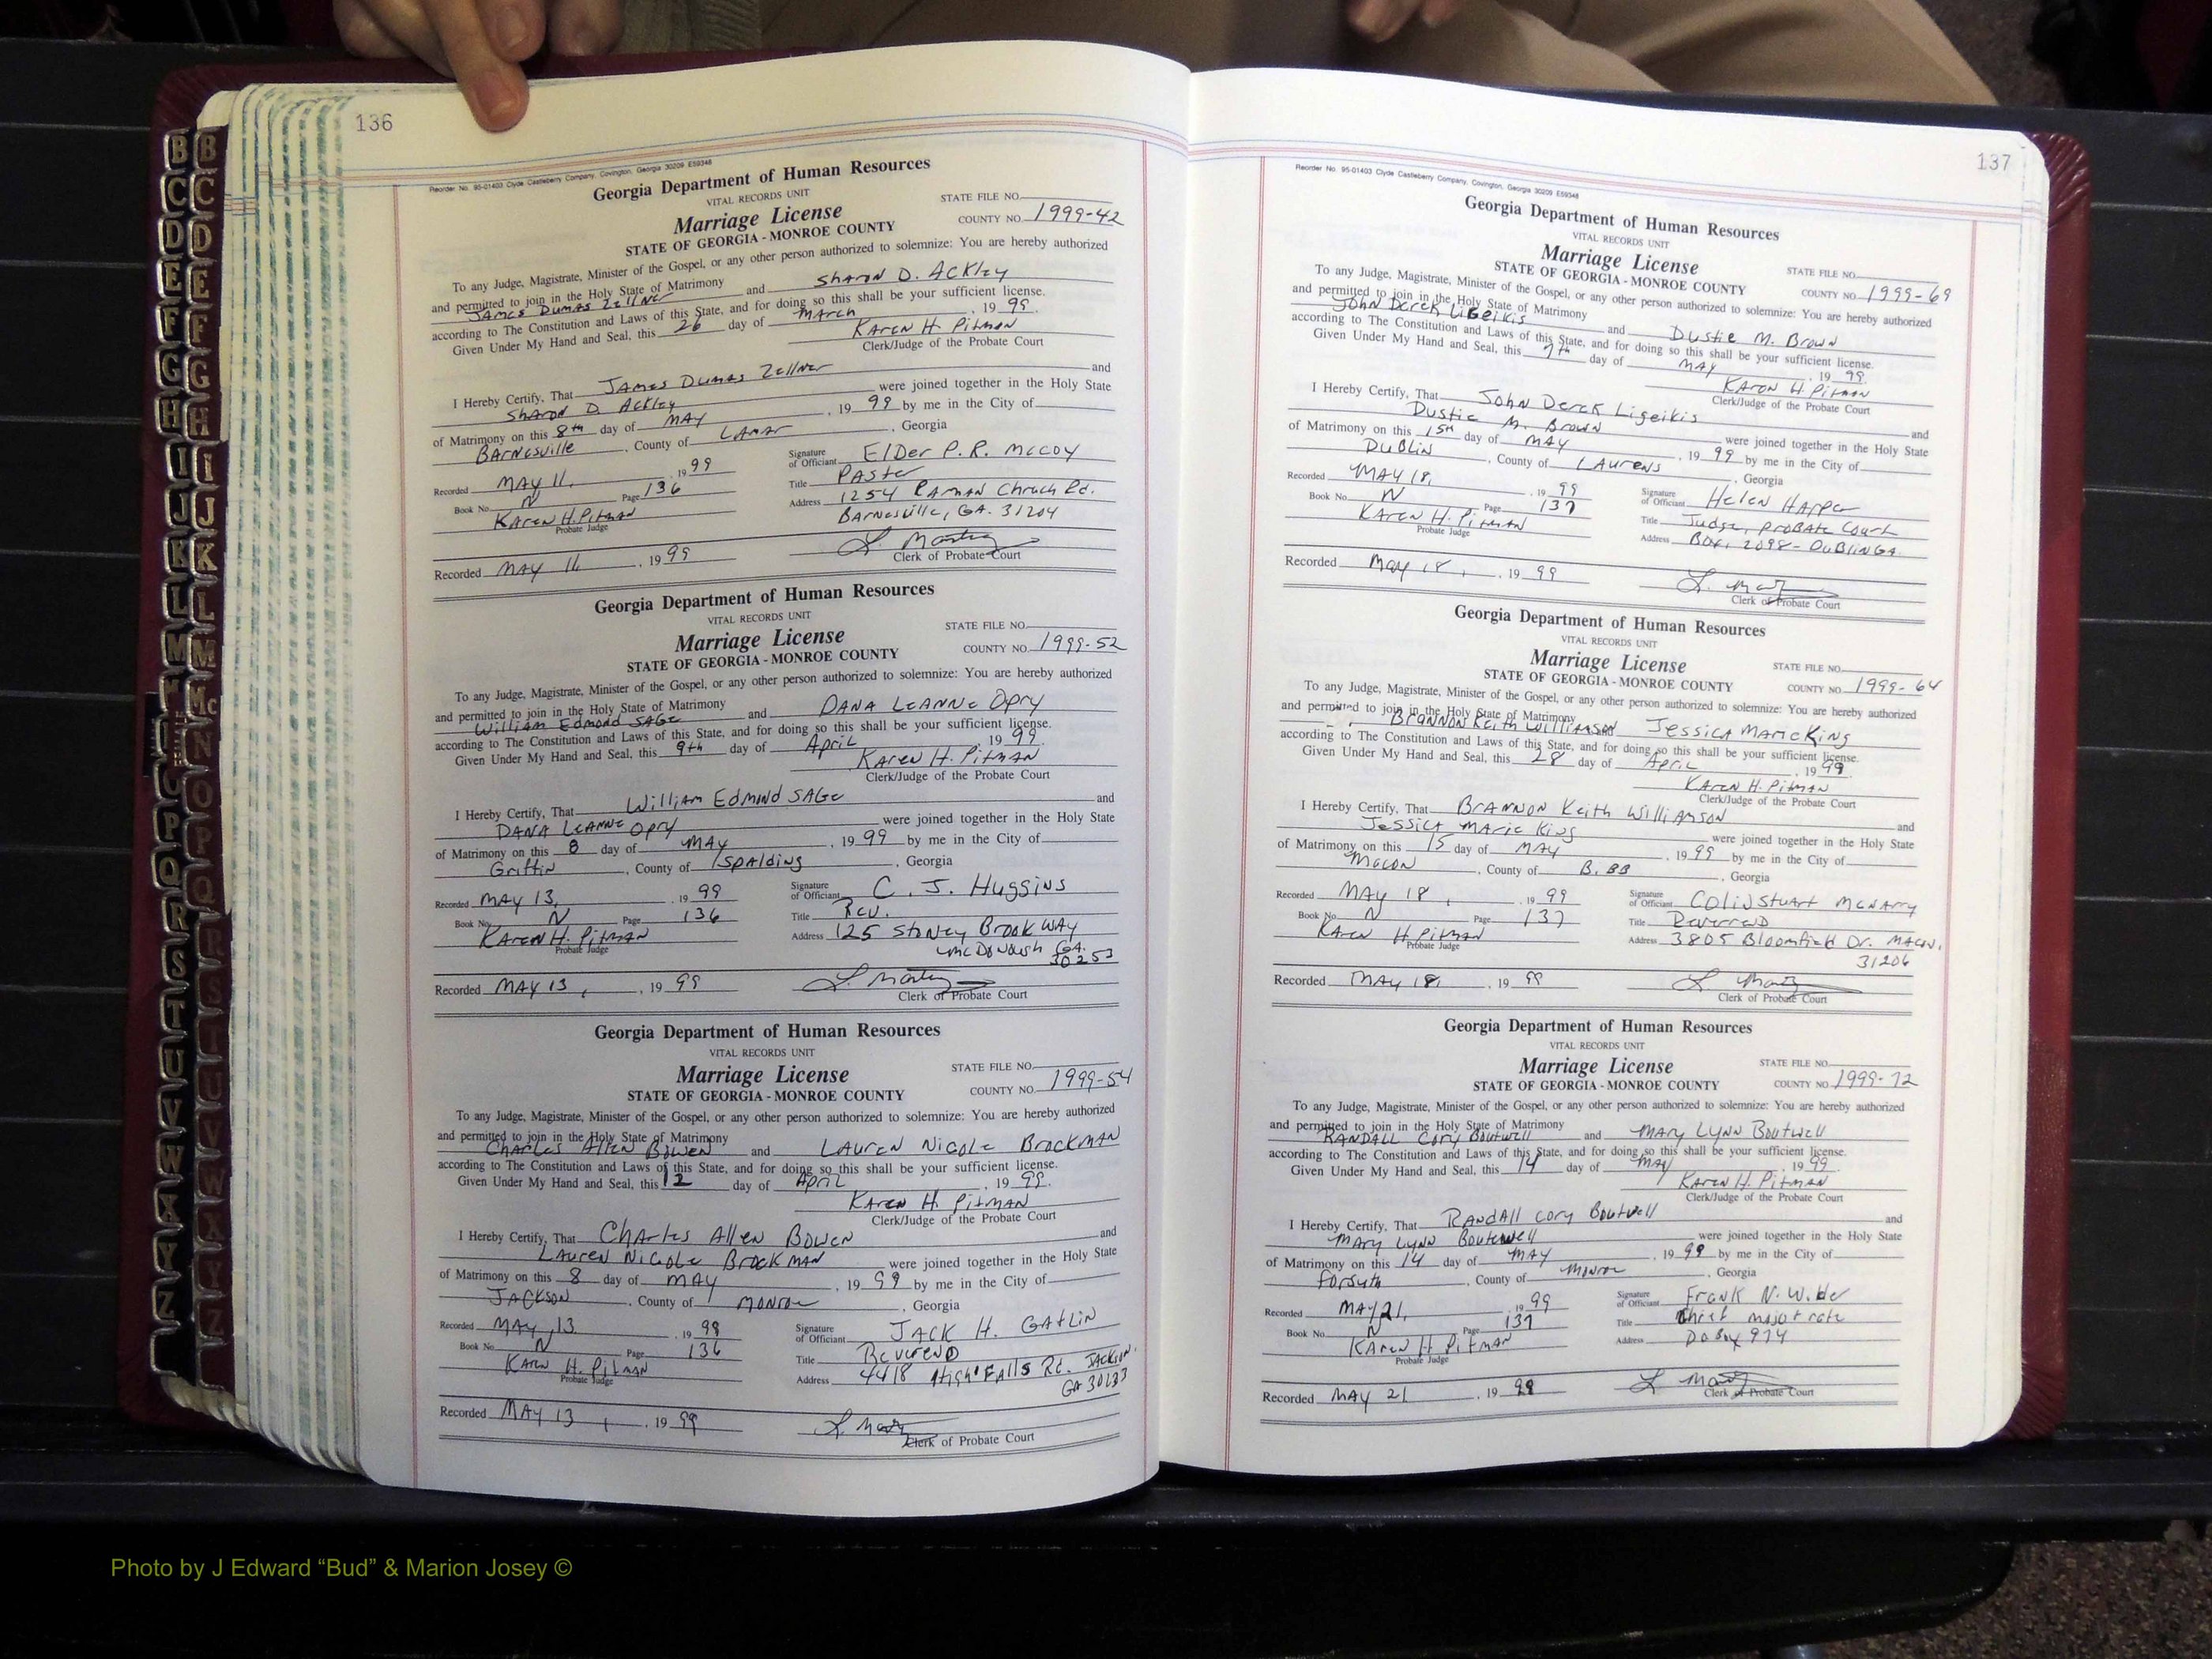 136
Reorder No. 95-01403 Clyde Castleberry Company, Covington, Georgia 30209 E59348
Georgia Department of Human Resources
VITAL RECORDS UNIT
Marriage License
STATE OF GEORGIA - MONROE COUNTY
STATE FILE NO.
COUNTY NO. 1999-42
To any Judge, Magistrate, Minister of the Gospel, or any other person authorized to solemnize: You are hereby authorized
and permitted to join in the Holy State of Matrimony
James Dumas Zellner and Sharon D. Ackley
according to The Constitution and Laws of this State, and for doing so this shall be your sufficient license.
Given Under My Hand and Seal, this 26 day of March, 19 99.
Karen H. Pitman
Clerk/Judge of the Probate Court
I Hereby Certify, That James Dumas Zellner and
Sharon D. Ackley were joined together in the Holy State
of Matrimony on this 8th day of May, 19 99 by me in the City of
Barnesville, County of Lamar, Georgia
Recorded May 11, 19 99
Book No. N Page 136
Karen H. Pitman
Probate Judge
Signature of Officiant Elder P.R. McCoy
Title Paster
Address 1254 Raman Chruch Rd.
Barnesville, GA. 31204
Recorded May 11, 19 99
Clerk of Probate Court
Georgia Department of Human Resources
VITAL RECORDS UNIT
Marriage License
STATE OF GEORGIA - MONROE COUNTY
STATE FILE NO.
COUNTY NO. 1999-52
To any Judge, Magistrate, Minister of the Gospel, or any other person authorized to solemnize: You are hereby authorized
and permitted to join in the Holy State of Matrimony
William Edmond Sage and Dana Leanne Opry
according to The Constitution and Laws of this State, and for doing so this shall be your sufficient license.
Given Under My Hand and Seal, this 9th day of April, 19 99.
Karen H. Pitman
Clerk/Judge of the Probate Court
I Hereby Certify, That William Edmond Sage and
Dana Leanne Opry were joined together in the Holy State
of Matrimony on this 8 day of May, 19 99 by me in the City of
Griffin, County of Spalding, Georgia
Recorded May 13, 19 99
Book No. N Page 136
Karen H. Pitman
Probate Judge
Signature of Officiant C. J. Huggins
Title Rev.
Address 125 Stoney Brook Way
McDonough GA.
30253
Recorded May 13, 19 99
Clerk of Probate Court
Georgia Department of Human Resources
VITAL RECORDS UNIT
Marriage License
STATE OF GEORGIA - MONROE COUNTY
STATE FILE NO.
COUNTY NO. 1999-54
To any Judge, Magistrate, Minister of the Gospel, or any other person authorized to solemnize: You are hereby authorized
and permitted to join in the Holy State of Matrimony
Charles Allen Bowen and Lauren Nicole Brockman
according to The Constitution and Laws of this State, and for doing so this shall be your sufficient license.
Given Under My Hand and Seal, this 12 day of April, 19 99.
Karen H. Pitman
Clerk/Judge of the Probate Court
I Hereby Certify, That Charles Allen Bowen and
Lauren Nicole Brockman were joined together in the Holy State
of Matrimony on this 8 day of May, 19 99 by me in the City of
Jackson, County of Monroe, Georgia
Recorded May 13, 19 99
Book No. N Page 136
Karen H. Pitman
Probate Judge
Signature of Officiant Jack H. Gatlin
Title Reverend
Address 4418 High Falls Rd. Jackson,
GA 30233
Recorded May 13, 19 99
Clerk of Probate Court
137
Reorder No. 95-01403 Clyde Castleberry Company, Covington, Georgia 30209 E59348
Georgia Department of Human Resources
VITAL RECORDS UNIT
Marriage License
STATE OF GEORGIA - MONROE COUNTY
STATE FILE NO.
COUNTY NO. 1999-69
To any Judge, Magistrate, Minister of the Gospel, or any other person authorized to solemnize: You are hereby authorized
and permitted to join in the Holy State of Matrimony
John Derek Ligeikis and Dustie M. Brown
according to The Constitution and Laws of this State, and for doing so this shall be your sufficient license.
Given Under My Hand and Seal, this 7th day of May, 19 99.
Karen H. Pitman
Clerk/Judge of the Probate Court
I Hereby Certify, That John Derek Ligeikis and
Dustie M. Brown were joined together in the Holy State
of Matrimony on this 15th day of May, 19 99 by me in the City of
Dublin, County of Laurens, Georgia
Recorded May 18, 19 99
Book No. N Page 137
Karen H. Pitman
Probate Judge
Signature of Officiant Helen Harper
Title Judge, Probate Court
Address Box, 2098 - Dublin GA.
Recorded May 18, 19 99
Clerk of Probate Court
Georgia Department of Human Resources
VITAL RECORDS UNIT
Marriage License
STATE OF GEORGIA - MONROE COUNTY
STATE FILE NO.
COUNTY NO. 1999-64
To any Judge, Magistrate, Minister of the Gospel, or any other person authorized to solemnize: You are hereby authorized
and permitted to join in the Holy State of Matrimony
Brannon Keith Williamson Jessica Marie King
according to The Constitution and Laws of this State, and for doing so this shall be your sufficient license.
Given Under My Hand and Seal, this 28 day of April, 19 99.
Karen H. Pitman
Clerk/Judge of the Probate Court
I Hereby Certify, That Brannon Keith Williamson and
Jessica Marie King were joined together in the Holy State
of Matrimony on this 15 day of May, 19 99 by me in the City of
Macon, County of Bibb, Georgia
Recorded May 18, 19 99
Book No. N Page 137
Karen H. Pitman
Probate Judge
Signature of Officiant Colin Stuart McNarry
Title Reverend
Address 3805 Bloomfield Dr. Macon,
31206
Recorded May 18, 19 99
Clerk of Probate Court
Georgia Department of Human Resources
VITAL RECORDS UNIT
Marriage License
STATE OF GEORGIA - MONROE COUNTY
STATE FILE NO.
COUNTY NO. 1999-72
To any Judge, Magistrate, Minister of the Gospel, or any other person authorized to solemnize: You are hereby authorized
and permitted to join in the Holy State of Matrimony
Randall Cory Boutwell and Mary Lynn Boutwell
according to The Constitution and Laws of this State, and for doing so this shall be your sufficient license.
Given Under My Hand and Seal, this 14 day of May, 19 99.
Karen H. Pitman
Clerk/Judge of the Probate Court
I Hereby Certify, That Randall Cory Boutwell and
Mary Lynn Boutwell were joined together in the Holy State
of Matrimony on this 14 day of May, 19 99 by me in the City of
Forsyth, County of Monroe, Georgia
Recorded May 21, 19 99
Book No. N Page 137
Karen H. Pitman
Probate Judge
Signature of Officiant Frank N. Wilder
Title Chief
Address PO Box 974
Recorded May 21, 19 99
Clerk of Probate Court
B B
C C
D D
E E
F F
G G
H H
I I
J J
K K
L L
M M
Mc
N
O
P P
Q Q
R R
S S
T T
U U
V V
W W
X X
Y Y
Z Z
Photo by J Edward “Bud” & Marion Josey ©